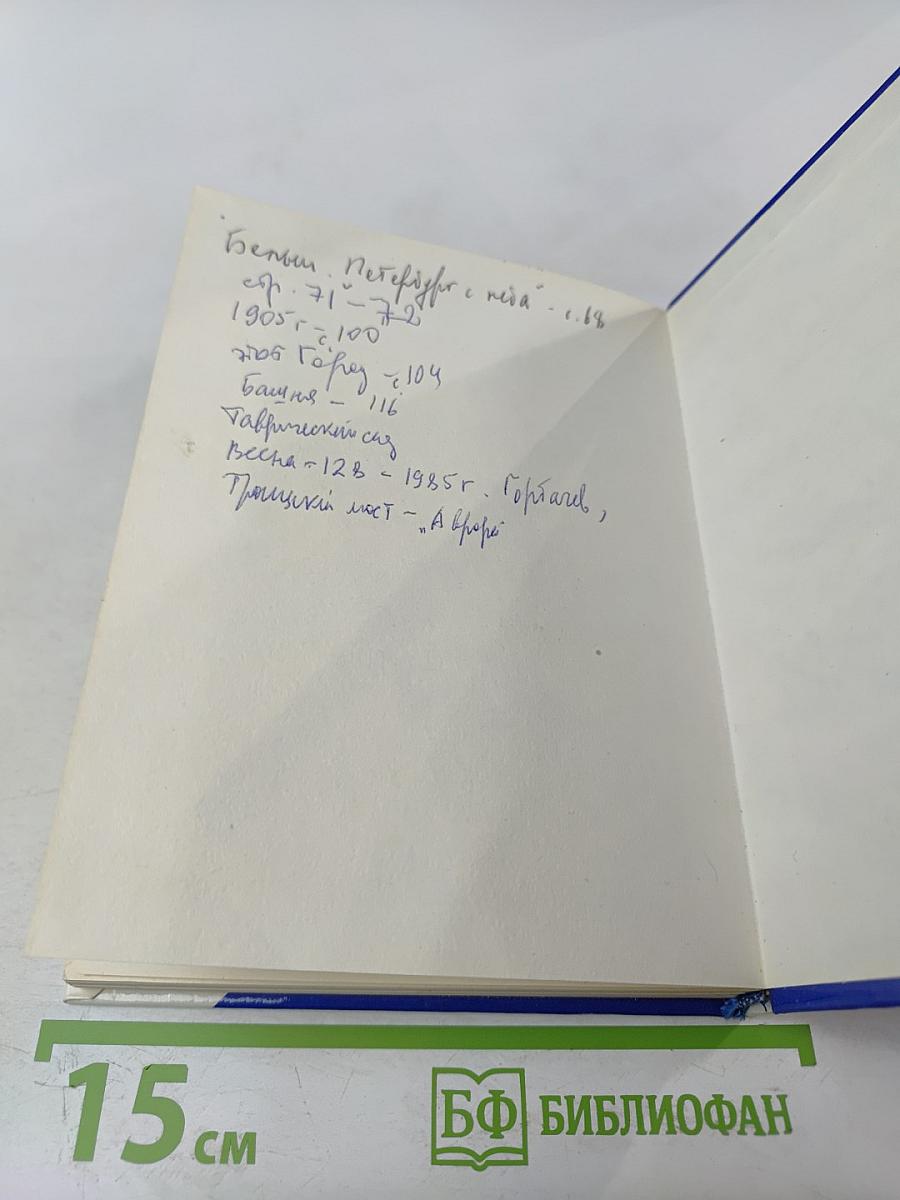 "Белый. Петербург с неба" - с. 68
стр. 71 - 72
1905 г - с. 100
этот Город - с. 104
Башня - 116
Таврический сад
Весна - 128 - 1985 г. Горбачев,
Троицкий мост - „Аврора"
15 см
БФ БИБЛИОФАН